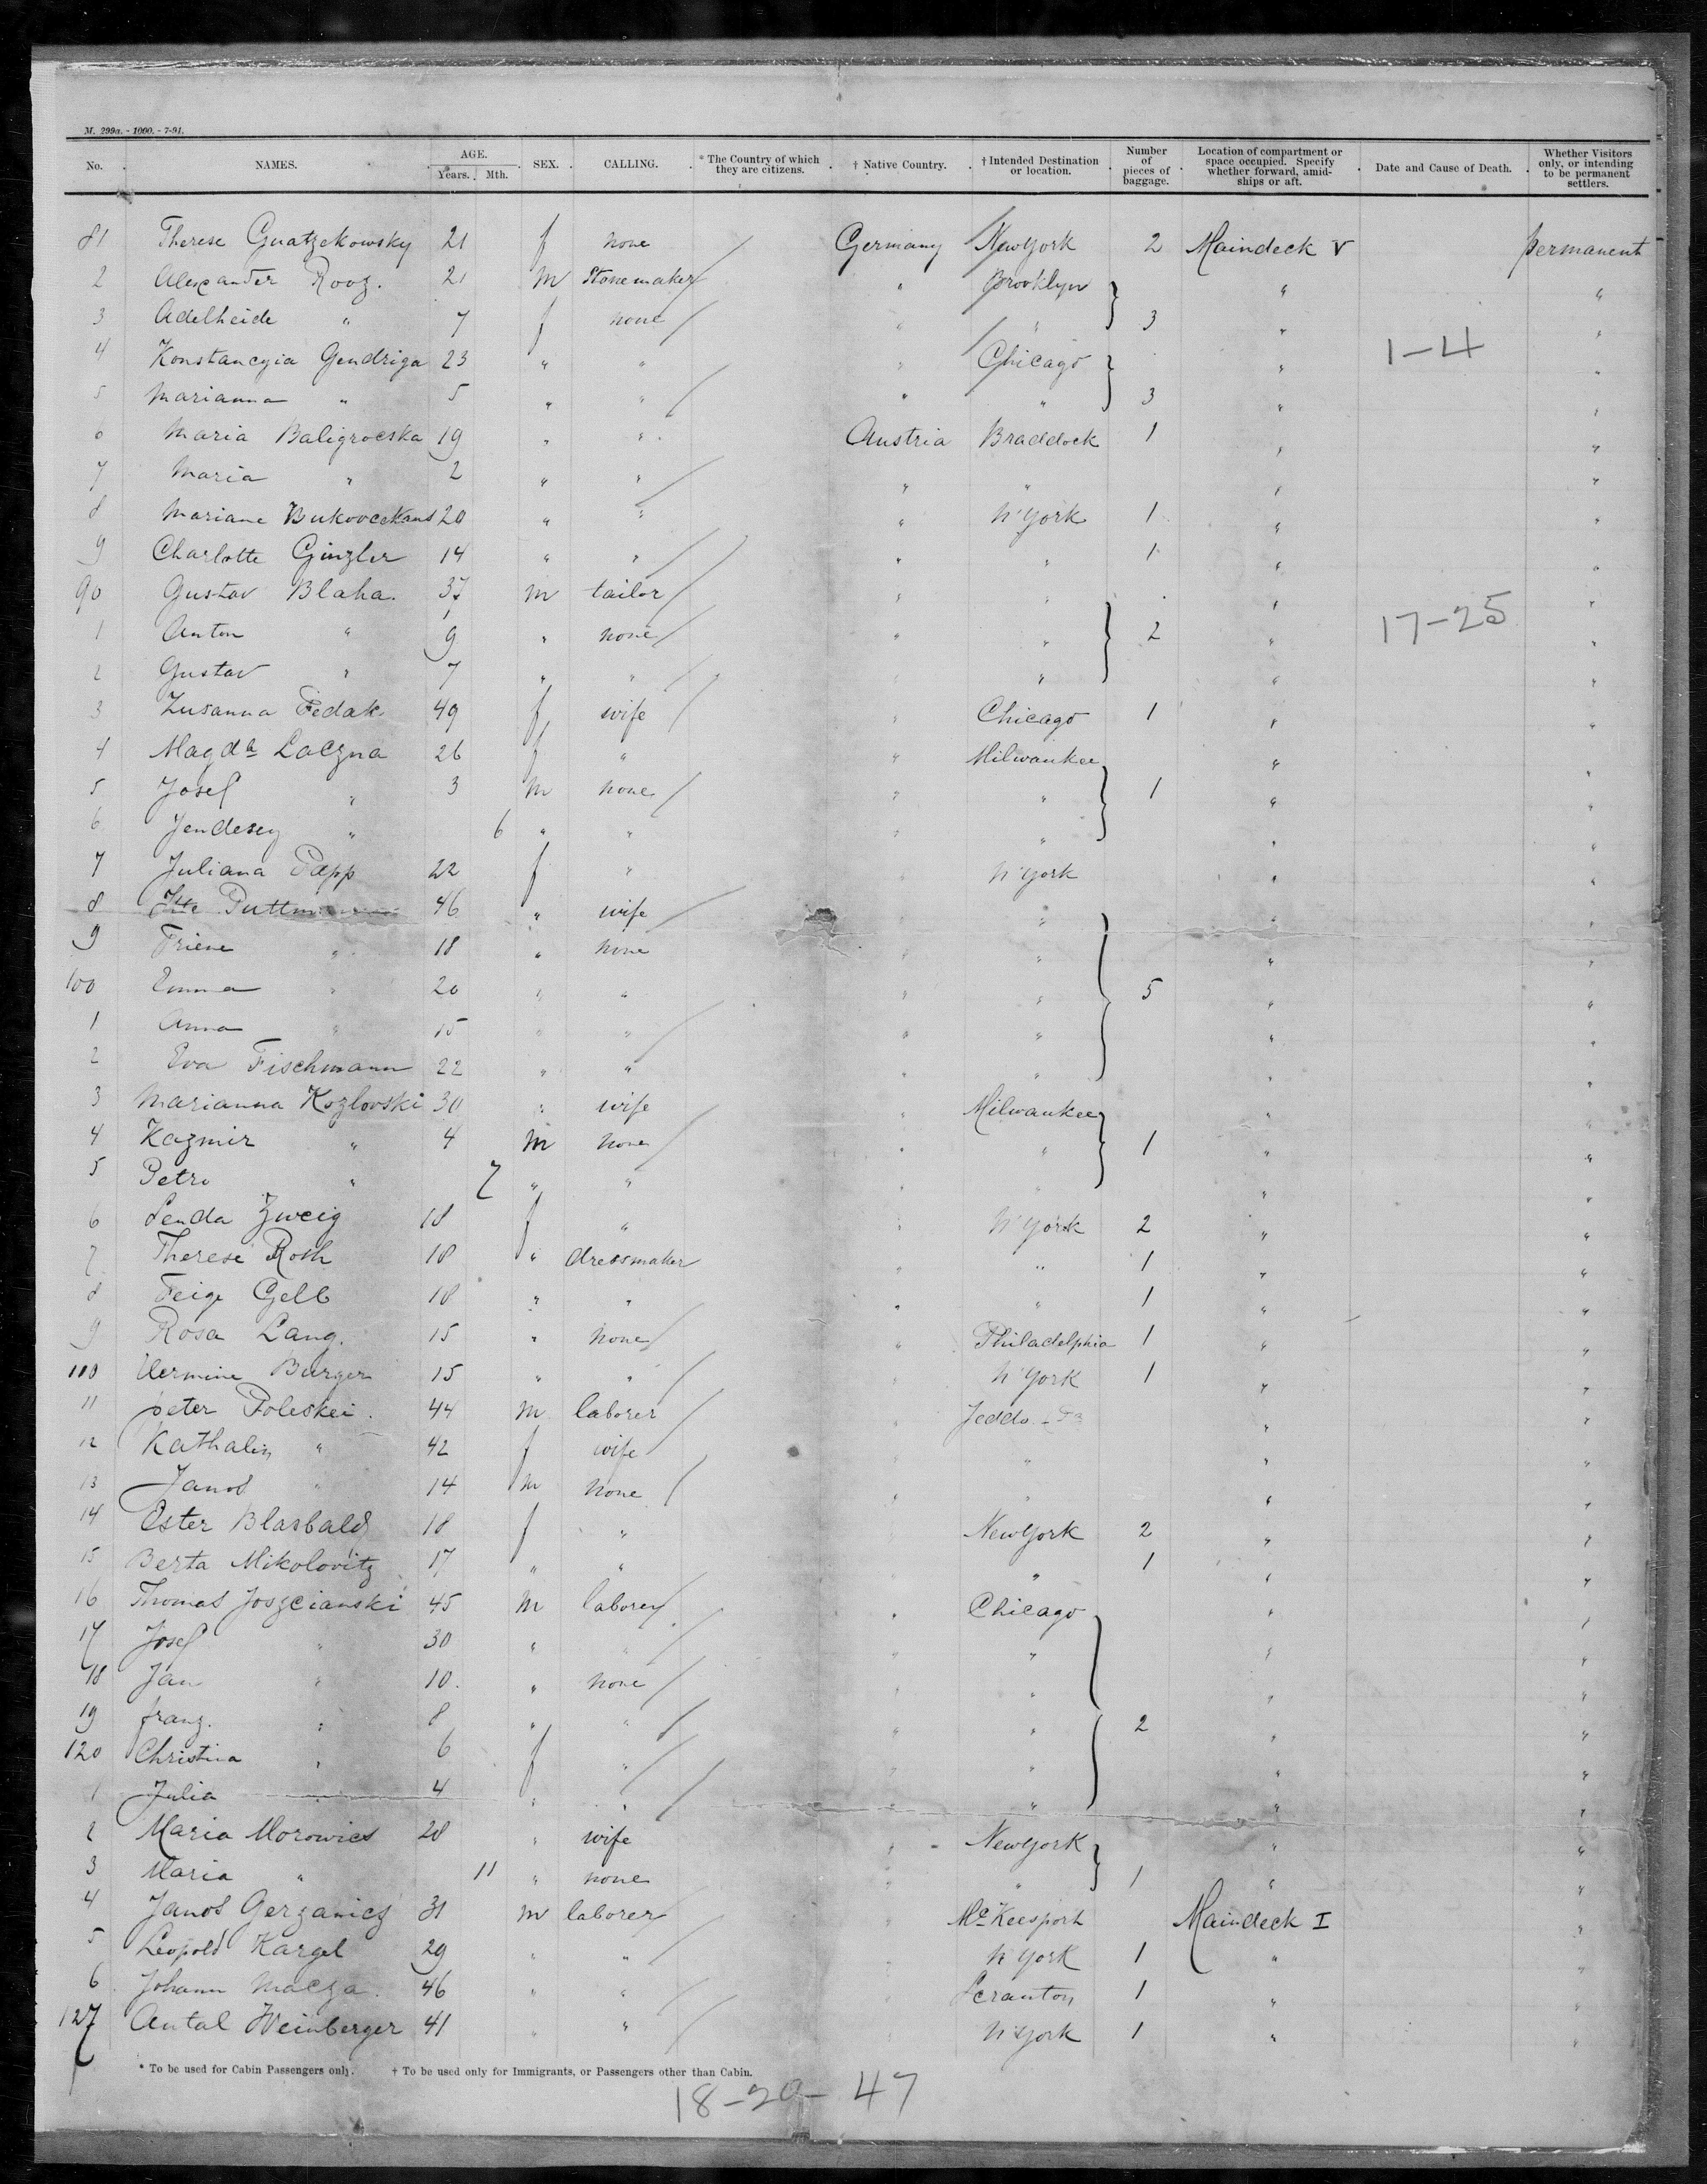 M. 299a. - 1000. - 7-91.
No. NAMES. AGE. Years. Mth. SEX. CALLING. * The Country of which they are citizens. † Native Country. † Intended Destination or location. Number of pieces of baggage. Location of compartment or space occupied. Specify whether forward, amidships or aft. Date and Cause of Death. Whether Visitors only, or intending to be permanent settlers.
81 Therese Gnatzekowsky 21 f none Germany New York 2 Maindeck V permanent
2 Alexander Rooz. 21 m Stonemaker " Brooklyn " "
3 Adelheide " 7 f none " " 3 " "
4 Konstancyia Gendriga 23 " " " Chicago " 1-4 "
5 Marianna " 5 " " " " 3 " "
6 Maria Baligrocska 19 " " Austria Braddock 1 " "
7 Maria " 2 " " " " " "
8 Mariane 20 " " " N'York 1 " "
9 Charlotte Ginzler 14 " " " " 1 " "
90 Gustav Blaha. 37 m tailor " " " "
1 Anton " 9 " none " " 2 " 17-25 "
2 Gustav " 7 " " " " " "
3 Zusanna Fedak 49 f wife " Chicago 1 " "
4 Magda Laczna 26 f " " Milwaukee " "
5 Josef " 3 m none " " 1 " "
6 Jendesey " 6 " " " " " "
7 Juliana Papp 22 f " " N'York " "
8 Itte 46 " wife " " " "
9 Friene " 18 " none " " " "
100 Emma " 20 " " " " 5 " "
1 Anna " 15 " " " " " "
2 Eva Fischmann 22 " " " " " "
3 Marianna Kozlovski 30 " wife " Milwaukee " "
4 Kazmir " 4 m none " " 1 " "
5 Petro " 7 " " " " " "
6 Lenda Zweig 18 f " " N'York 2 " "
7 Therese Roth 18 " dressmaker " " 1 " "
8 Feige Gelb 18 " " " " 1 " "
9 Rosa Lang. 15 " none " Philadelphia 1 " "
110 Hermine Burger 15 " " " N'York 1 " "
11 peter Poleskei. 44 m laborer " Jeddo " "
12 Kathalin " 42 f wife " " " "
13 Janos " 14 m none " " " "
14 Ester Blasbald 18 f " New York 2 " "
15 Berta Mikolovitz 17 " " " " 1 " "
16 Thomas Joszcianski 45 m laborer " Chicago " "
17 Josef " 30 " " " " " "
18 Jan " 10. " none " " " "
19 franz. " 8 " " " " 2 " "
120 Christina " 6 f " " " " "
1 Julia " 4 " " " " " "
2 Maria Morowics 28 " wife " New York " "
3 Maria " 11 " none " " 1 " "
4 Janos Gerzanics 31 m laborer " McKeesport Maindeck I "
5 Leopold Kargel 29 " " " N'York 1 " "
6 Johann Macza. 46 " " " Scranton 1 " "
127 Antal Weinberger 41 " " " N'York 1 " "
* To be used for Cabin Passengers only. † To be used only for Immigrants, or Passengers other than Cabin.
18-20-47